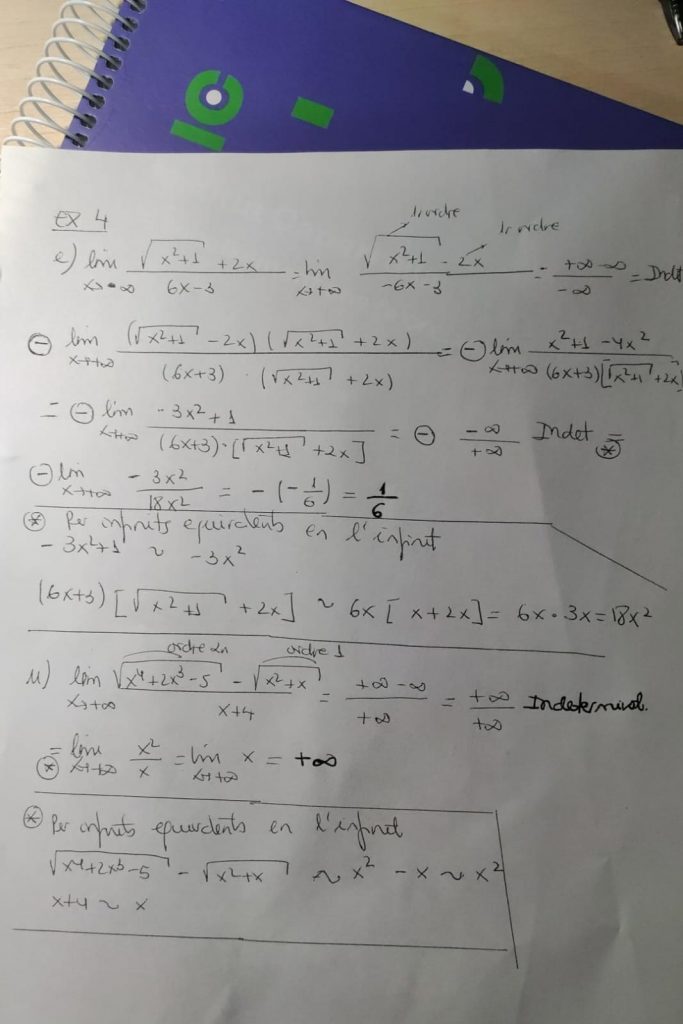 EX 4
1r ordre 1r ordre
e) lim x→-∞ (√(x²+1) + 2x)/(6x-3) = lim x→+∞ (√(x²+1) - 2x)/(-6x-3) = (+∞-∞)/(-∞) = Indet
⊖ lim x→+∞ ((√(x²+1) - 2x)(√(x²+1) + 2x))/((6x+3)·(√(x²+1) + 2x)) = ⊖ lim x→+∞ (x²+1-4x²)/((6x+3)[√(x²+1)+2x])
= ⊖ lim x→+∞ (-3x²+1)/((6x+3)·[√(x²+1) + 2x]) = ⊖ (-∞)/(+∞) Indet = ⊛
⊖ lim x→+∞ (-3x²)/(18x²) = -(-1/6) = 1/6
⊛ Per infinits equivalents en l'infinit
-3x²+1 ~ -3x²
(6x+3)[√(x²+1) + 2x] ~ 6x[x+2x] = 6x·3x = 18x²
ordre 2n ordre 1
lim x→+∞ (√(x⁴+2x³-5) - √(x²+x))/(x+4) = (+∞-∞)/(+∞) = (+∞)/(+∞) Indeterminat.
= ⊛ lim x→+∞ x²/x = lim x→+∞ x = +∞
⊛ Per infinits equivalents en l'infinit
√(x⁴+2x³-5) - √(x²+x) ~ x² - x ~ x²
x+4 ~ x